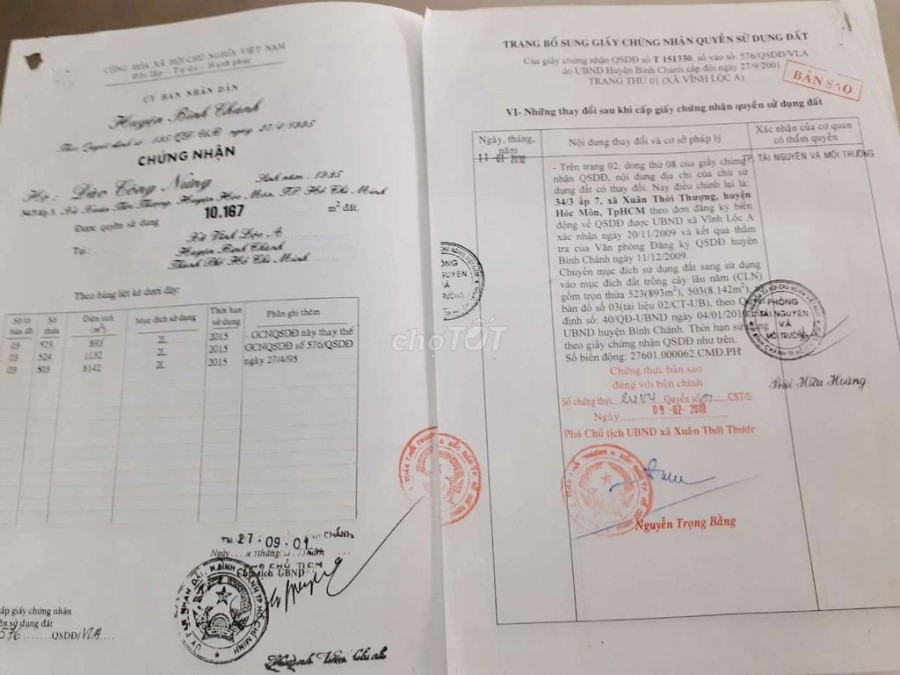 CỘNG HÒA XÃ HỘI CHỦ NGHĨA VIỆT NAM
Độc lập - Tự do - Hạnh phúc
ỦY BAN NHÂN DÂN
Huyện Bình Chánh
Theo Quyết định số 185/QĐ-UB ngày 27/4/1995
CHỨNG NHẬN
Hộ: Đào Công Nừng Sinh năm: 1945
34/3 ấp 3, Xã Xuân Thới Thượng, Huyện Hóc Môn, TP Hồ Chí Minh
Được quyền sử dụng 10.167 m² đất.
Tại: Xã Vĩnh Lộc A
Huyện Bình Chánh
Thành Phố Hồ Chí Minh
Theo bảng liệt kê dưới đây:
Số tờ bản đồ Số thửa Diện tích (m²) Mục đích sử dụng Thời hạn sử dụng Phần ghi thêm
03 523 893 2L 2015 . GCNQSDĐ này thay thế
03 524 1132 2L 2015 GCNQSDĐ số 576/QSDĐ
03 503 8142 2L 2015 ngày 27/4/95
27-09-01
CHỦ TỊCH
Chủ tịch UBND
cấp giấy chứng nhận
quyền sử dụng đất
576 QSDĐ/VLA
TRANG BỔ SUNG GIẤY CHỨNG NHẬN QUYỀN SỬ DỤNG ĐẤT
Của giấy chứng nhận QSDĐ số T 151330, số vào sổ: 576/QSDĐ/VLA
do UBND Huyện Bình Chánh cấp đổi ngày 27/9/2001
TRANG THỨ 01 (XÃ VĨNH LỘC A)
BẢN SAO
VI- Những thay đổi sau khi cấp giấy chứng nhận quyền sử dụng đất
Ngày, tháng, năm Nội dung thay đổi và cơ sở pháp lý Xác nhận của cơ quan có thẩm quyền
11-01-2010
TP. TÀI NGUYÊN VÀ MÔI TRƯỜNG
- Trên trang 02, dòng thứ 08 của giấy chứng
nhận QSDĐ, nội dung địa chỉ của chủ sử
dụng đất có thay đổi. Nay điều chỉnh lại là:
34/3 ấp 7, xã Xuân Thới Thượng, huyện
Hóc Môn, TpHCM theo đơn đăng ký biến
động về QSDĐ được UBND xã Vĩnh Lộc A
xác nhận ngày 20/11/2009 và kết quả thẩm
tra của Văn phòng Đăng ký QSDĐ huyện
Bình Chánh ngày 11/12/2009.
Chuyển mục đích sử dụng đất sang sử dụng
vào mục đích đất trồng cây lâu năm (CLN)
gồm trọn thửa 523(893m²), 503(8.142m²), tờ
bản đồ số 03(tài liệu 02/CT-UB), theo Quyết
định số: 40/QĐ-UBND ngày 04/01/2010
UBND huyện Bình Chánh. Thời hạn sử dụng
theo giấy chứng nhận QSDĐ như trên.
Số biến động: 27601.000062.CMĐ.PH
PHÒNG
TÀI NGUYÊN
VÀ
MÔI TRƯỜNG
Bùi Hữu Hoàng
Chứng thực bản sao
đúng với bản chính
Số chứng thực Quyển số 01 CST/Đ
Ngày 09-02-2010
Phó Chủ tịch UBND xã Xuân Thới Thượng
Nguyễn Trọng Bằng
chợTỐT